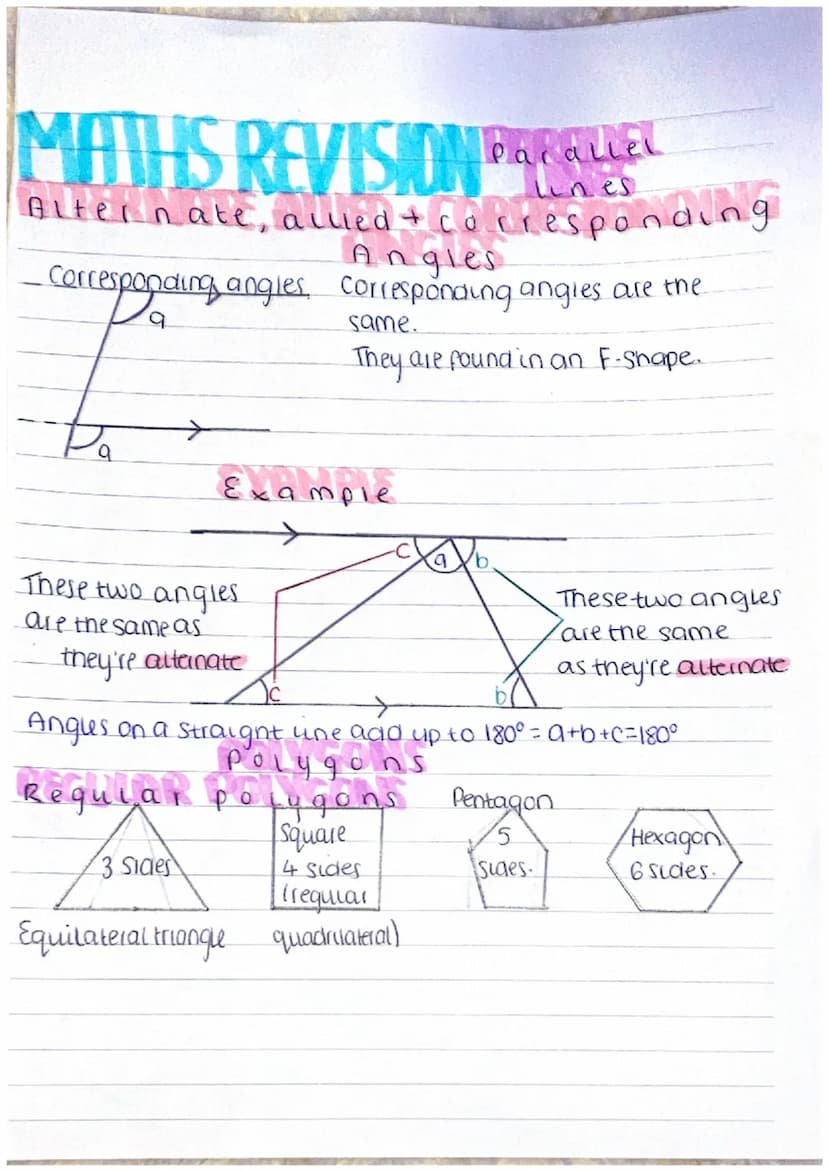 MATHS REVISION Parallel
lines
Alternate, allied + corresponding
Angles
Corresponding angles. Corresponding angles are the
same.
They are found in an F-shape.
a
a
Example
c a b
These two angles
are the same as
they're alternate
These two angles
are the same
as they're alternate
c b
Angles on a straight line add up to 180° = a+b+c=180°
Polygons
Regular polygons
Pentagon
3 sides
Square
4 sides
(regular
quadrilateral)
5
sides.
Hexagon
6 sides.
Equilateral triangle